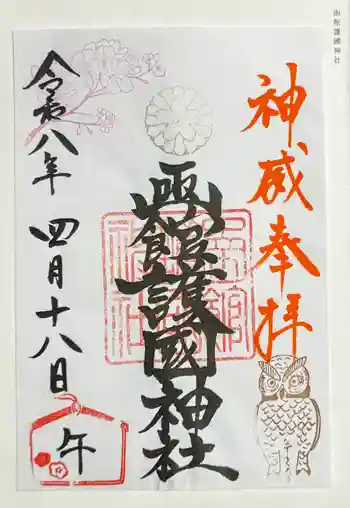 函館護國神社
神威奉拝
函館護國神社
令和八年
四月十八日
午